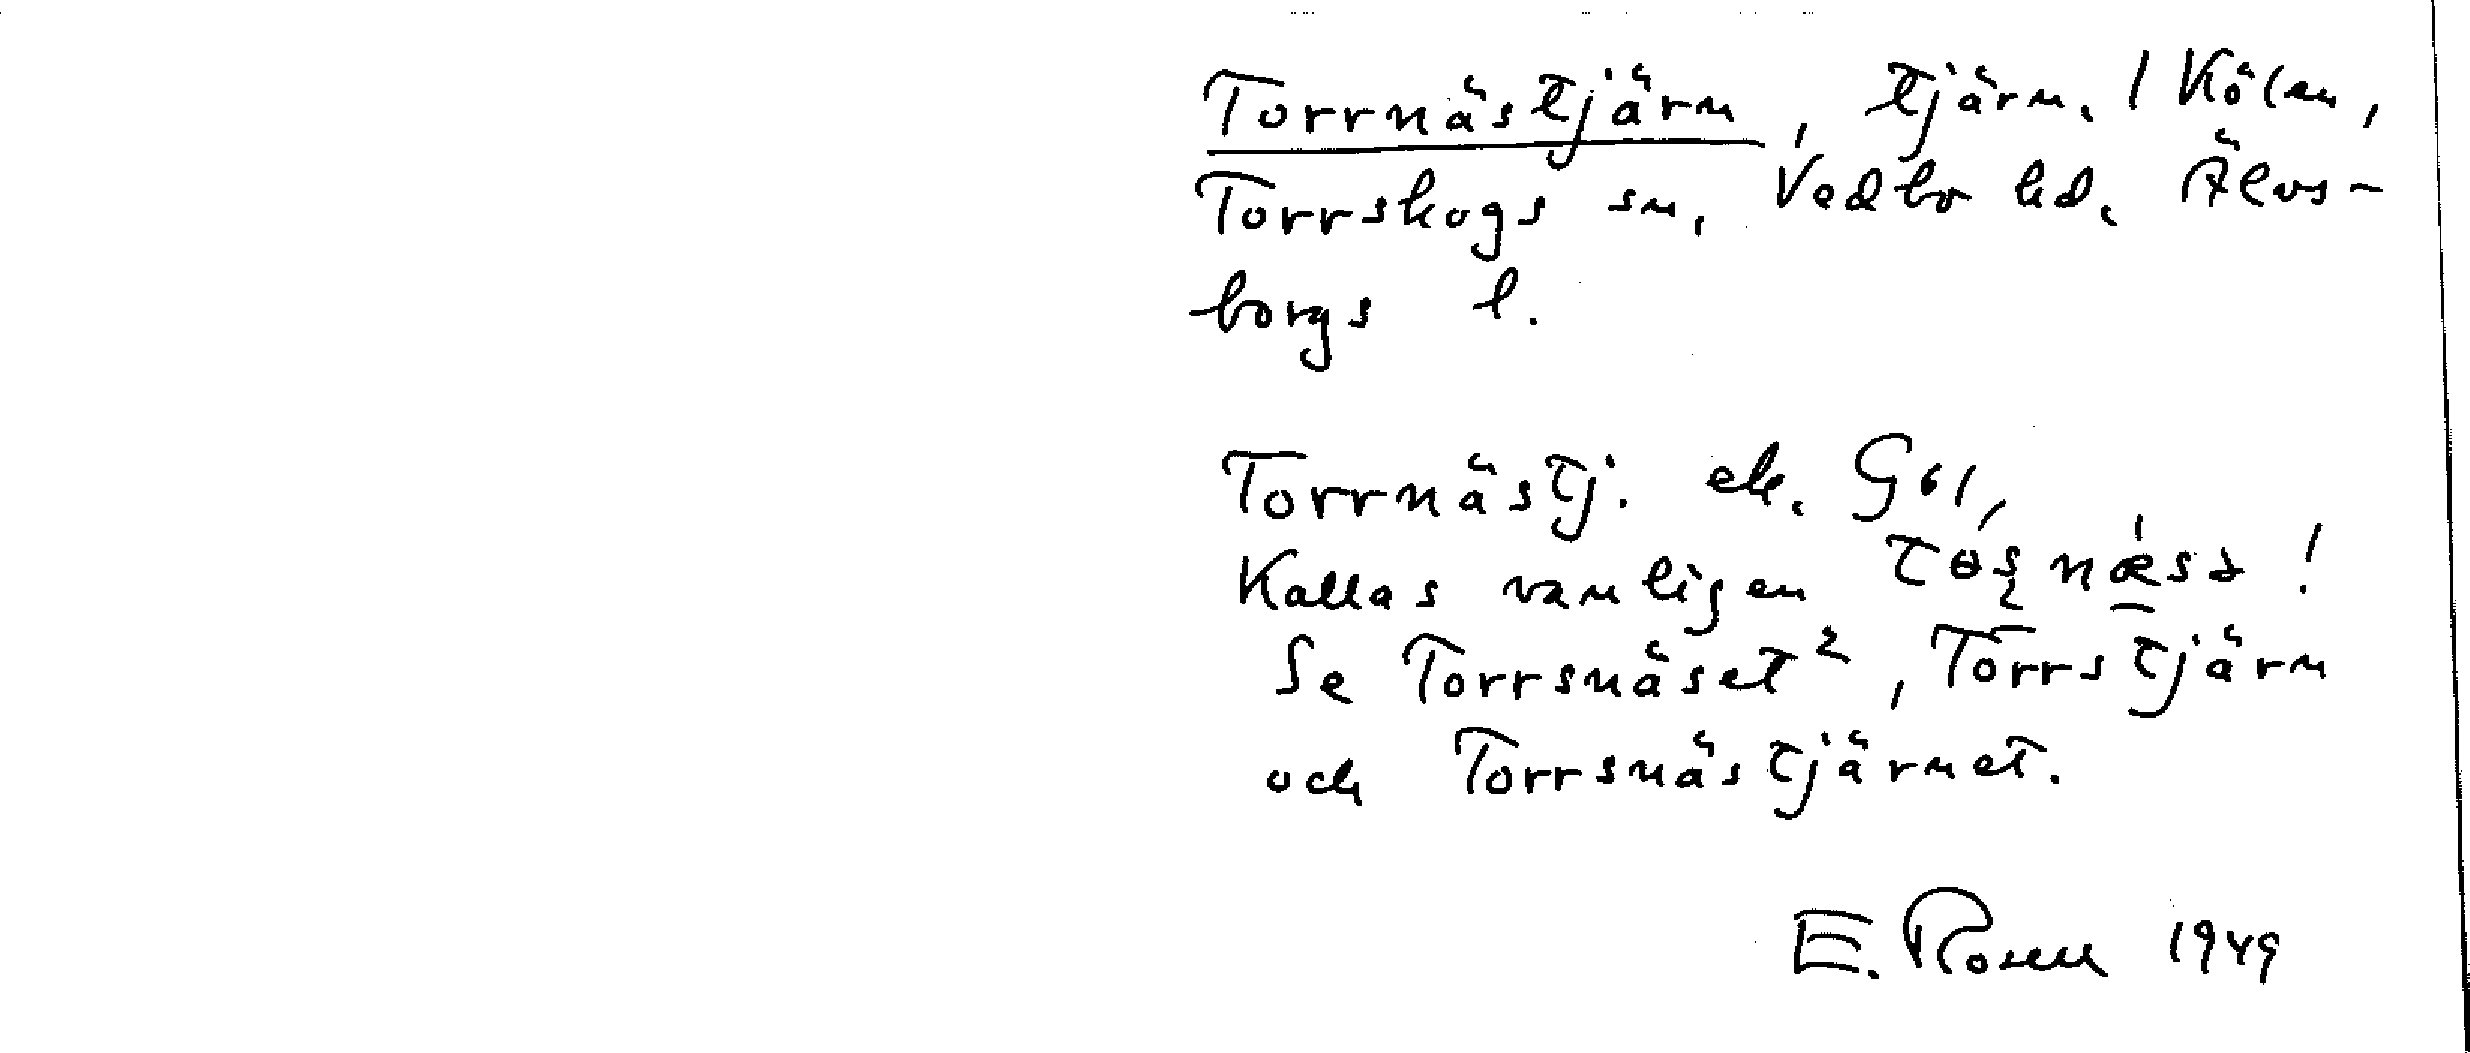 Torrnästjärn, tjärn, I Kölen,
Torrskogs sn, Vedbo hd, Älvs-
borgs l.
Torrnästj. ek. G61,
Kallas vanligen
Se Torrsnäset², Torrstjärn
och Torrsnästjärnet.
E. Rosen 1949